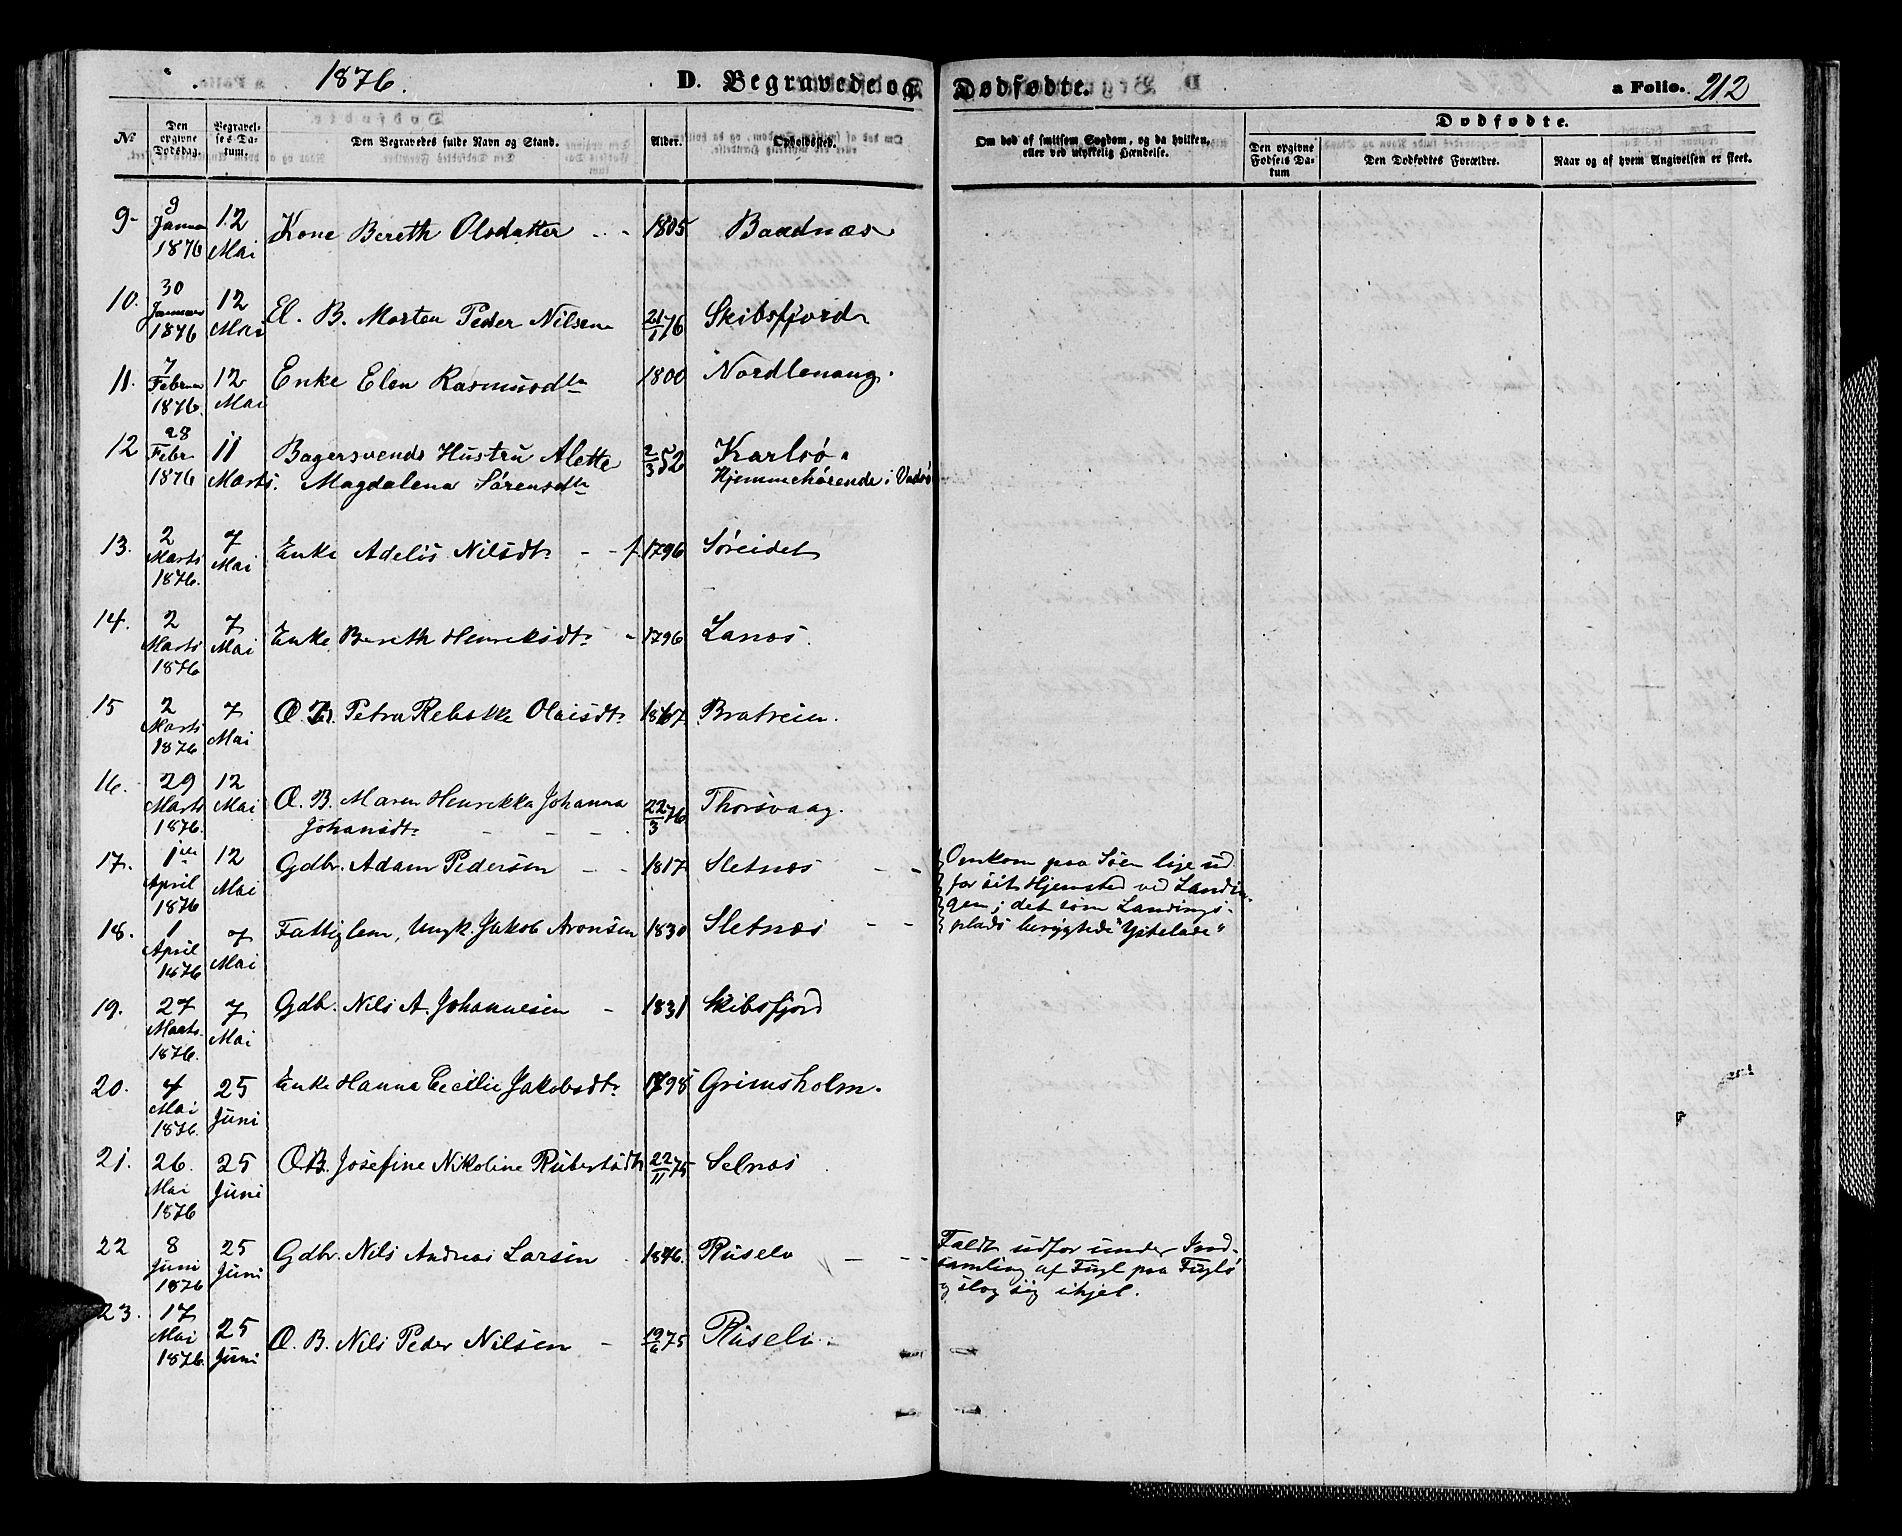 1876.
D. Begravede og Dødfødte.
a Folio. 212
No
Den opgivne Dødsdag.
Begravelses-Datum.
Den Begravedes fulde Navn og Stand.
Alder.
Opholdssted.
Om død af smitsom Sygdom, og da hvilken, eller ved ulykkelig Hændelse.
Dødfødte.
Den opgivne Fødsels Datum
Den Dødfødtes Forældre.
Naar og af hvem Angivelsen er skeet.
9- 9 Januar 1876 12 Mai Kone Bereth Olsdatter - - 1805 Baadnæs
10. 30 Januar 1876 12 Mai El. B. Morten Peder Nilsen 21/1 76 Skibsfjord
11. 7 Februar 1876. 12 Mai Enke Elen Rasmusdtr 1800 Nordlenang.
12 28 Febr 1876 11 Marts. Bagersvends Hustru Alette 2/3 52 Karlsø.
Magdalena Sørensdtr Hjemmehørende i Vadsø
13. 2 Marts 1876. 7 Mai Enke Adelis Nilsdtr - - f. 1796 Søreidet
14. 2 Marts 1876 7 Mai Enke Bereth Henriksdtr - 1796 Lanæs.
15 2 Marts 1876 7 Mai Æ. B. Petra Rebekke Olaisdtr 1867 Bratrein.
16. 29 Marts 1876. 12 Mai Æ. B. Maren Henrikka Johanna 22/3 76 Thorsvaag.
Johansdtr - - - -
17. 1ste April 1876 12 Mai Gdbr. Adam Pedersen - - 1817 Sletnæs - - Omkom paa Søen lige ud
for sit Hjemsted ved Landin-
gen; det som Landings-
plads berygtede "Ytrelade"
18. 1 April 1876 7 Mai Fattiglem, Ungk. Jakob Aronsen 1830 Sletnæs - -
19. 27 Marts. 1876. 7 Mai Gdbr. Nils A. Johannesen - 1831 Skibsfjord
20. 4 Mai 1876. 25 Juni Enke Hanna Cecilie Jakobsdtr 1798 Grimsholm.
21. 26. Mai 1876 25 Juni Æ.B. Josefine Nikoline Robertsdtr 22/11 75 Selnæs
22 8 Juni 1876 25 Juni Gdbr. Nils Andreas Larsen - 1846. Ruselv - - - Faldt udfor under Ind-
samling af Fugl paa Fuglø
og slog sig ihjel.
23. 17 Mai 1876. 25 Juni Æ. B. Nils Peder Nilsen - 19/6 75 Ruselv.